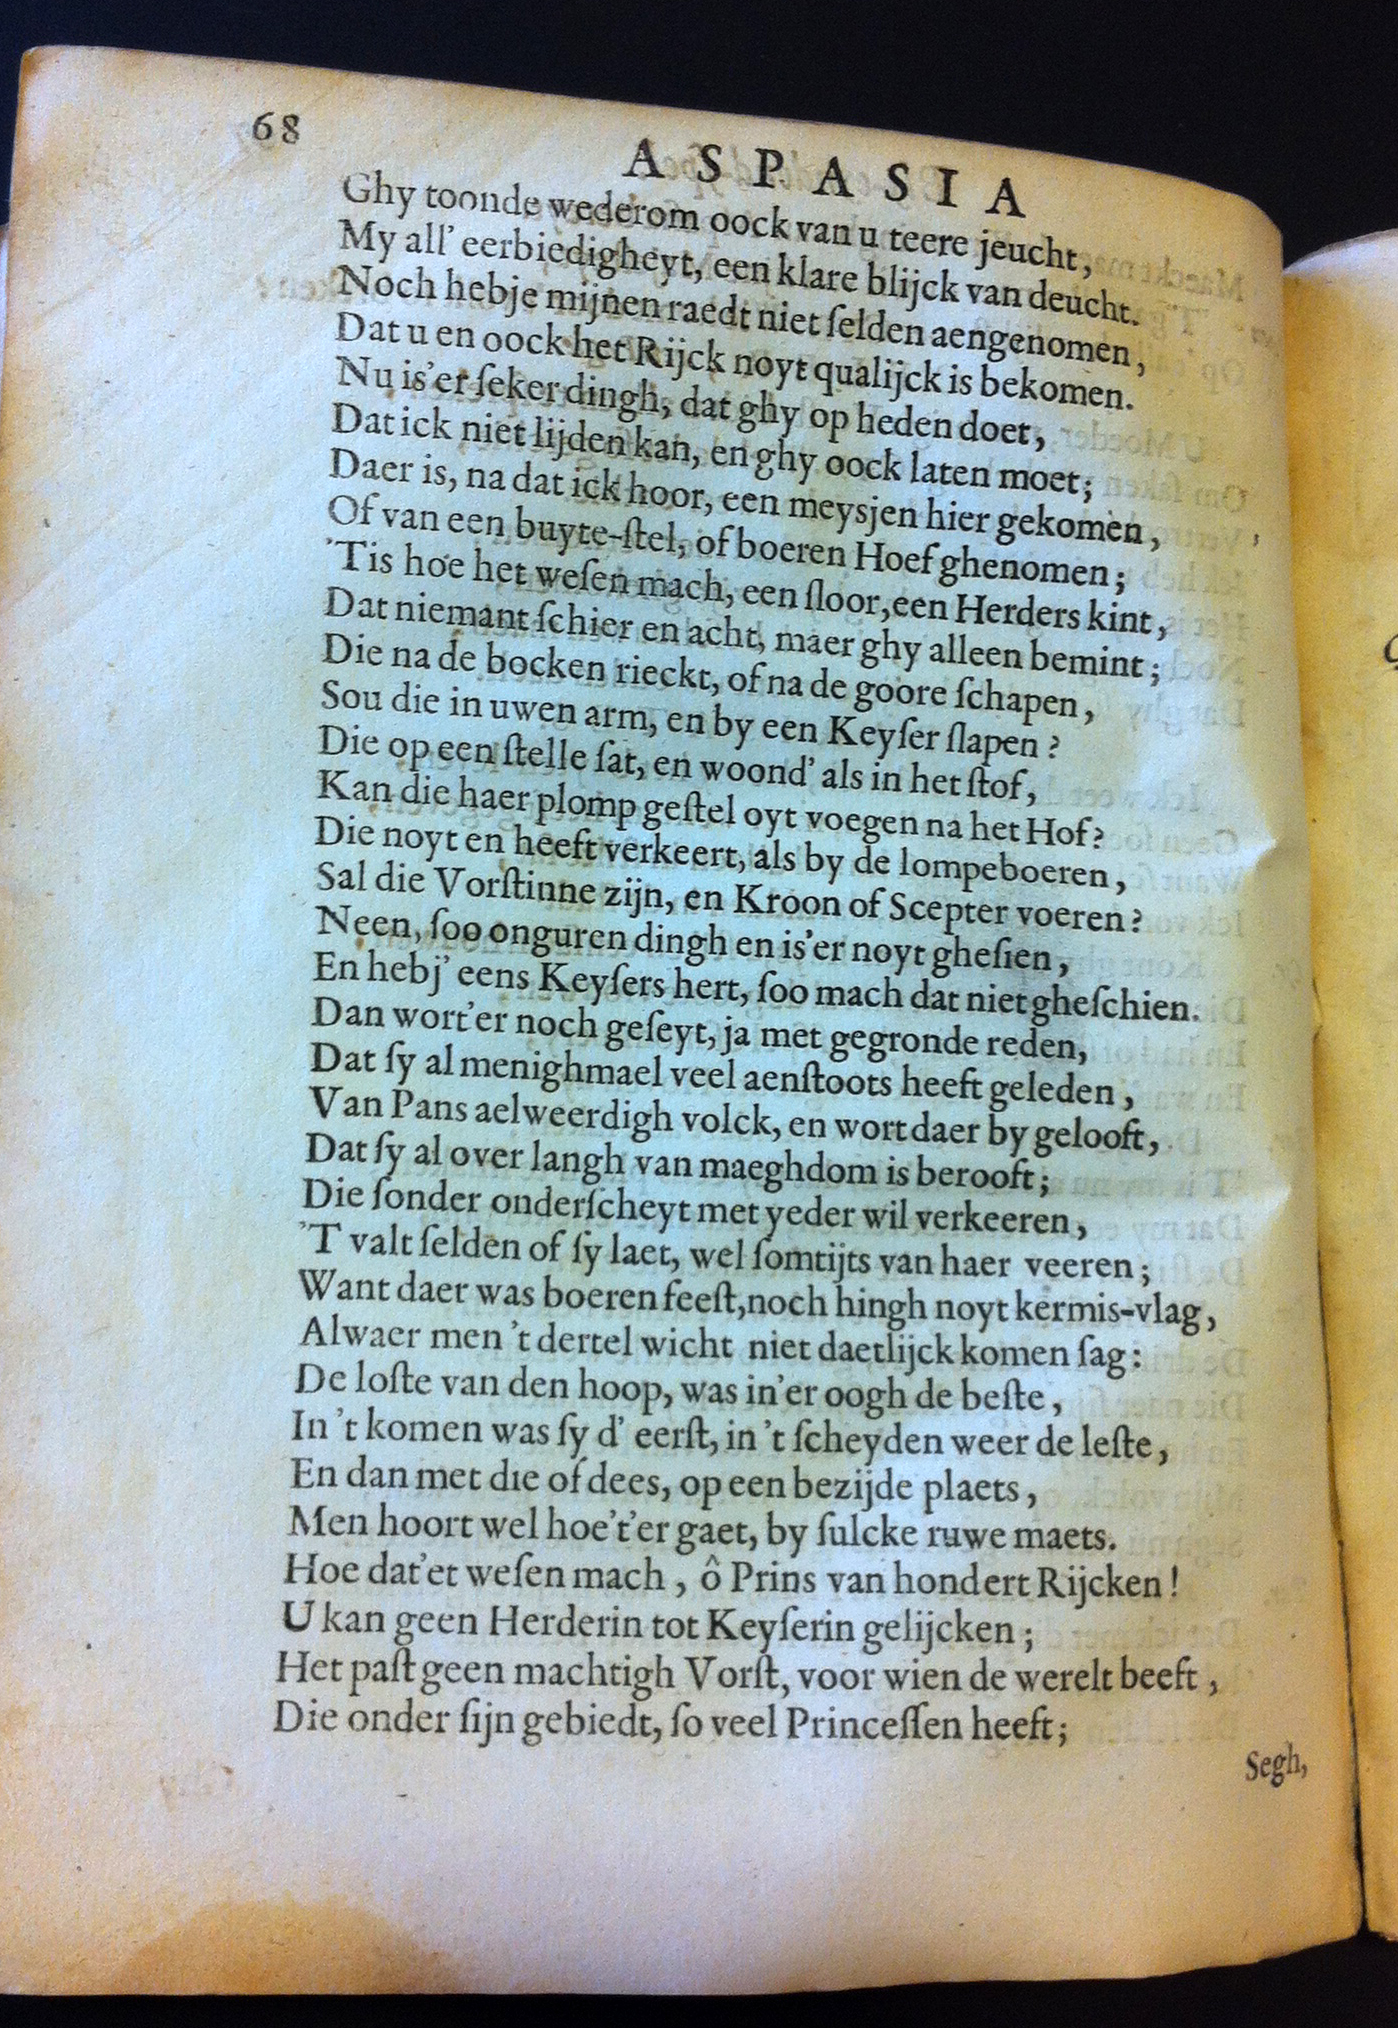 68
ASPASIA
Ghy toonde wederom oock van u teere jeucht,
My all' eerbiedigheyt, een klare blijck van deucht.
Noch hebje mijnen raedt niet ſelden aengenomen,
Dat u en oock het Rijck noyt qualijck is bekomen.
Nu is'er ſeker dingh, dat ghy op heden doet,
Dat ick niet lijden kan, en ghy oock laten moet;
Daer is, na dat ick hoor, een meysjen hier gekomen,
Of van een buyte-ſtel, of boeren Hoef ghenomen;
'Tis hoe het weſen mach, een ſloor, een Herders kint,
Dat niemant ſchier en acht, maer ghy alleen bemint;
Die na de bocken rieckt, of na de goore ſchapen,
Sou die in uwen arm, en by een Keyſer ſlapen?
Die op een ſtelle ſat, en woond' als in het ſtof,
Kan die haer plomp geſtel oyt voegen na het Hof?
Die noyt en heeft verkeert, als by de lompe boeren,
Sal die Vorſtinne zijn, en Kroon of Scepter voeren?
Neen, ſoo onguren dingh en is'er noyt gheſien,
En hebj' eens Keyſers hert, ſoo mach dat niet gheſchien.
Dan wort'er noch geſeyt, ja met gegronde reden,
Dat ſy al menighmael veel aenſtoots heeft geleden,
Van Pans aelweerdigh volck, en wort daer by gelooft,
Dat ſy al over langh van maeghdom is berooft;
Die ſonder onderſcheyt met yeder wil verkeeren,
'T valt ſelden of ſy laet, wel ſomtijts van haer veeren;
Want daer was boeren feeſt, noch hingh noyt kermis-vlag,
Alwaer men 't dertel wicht niet daetlijck komen ſag:
De loſte van den hoop, was in'er oogh de beſte,
In 't komen was ſy d' eerſt, in 't ſcheyden weer de leſte,
En dan met die of dees, op een bezijde plaets,
Men hoort wel hoe't'er gaet, by ſulcke ruwe maets.
Hoe dat'et weſen mach, ô Prins van hondert Rijcken!
U kan geen Herderin tot Keyſerin gelijcken;
Het paſt geen machtigh Vorſt, voor wien de werelt beeft,
Die onder ſijn gebiedt, ſo veel Princeſſen heeft;
Segh,